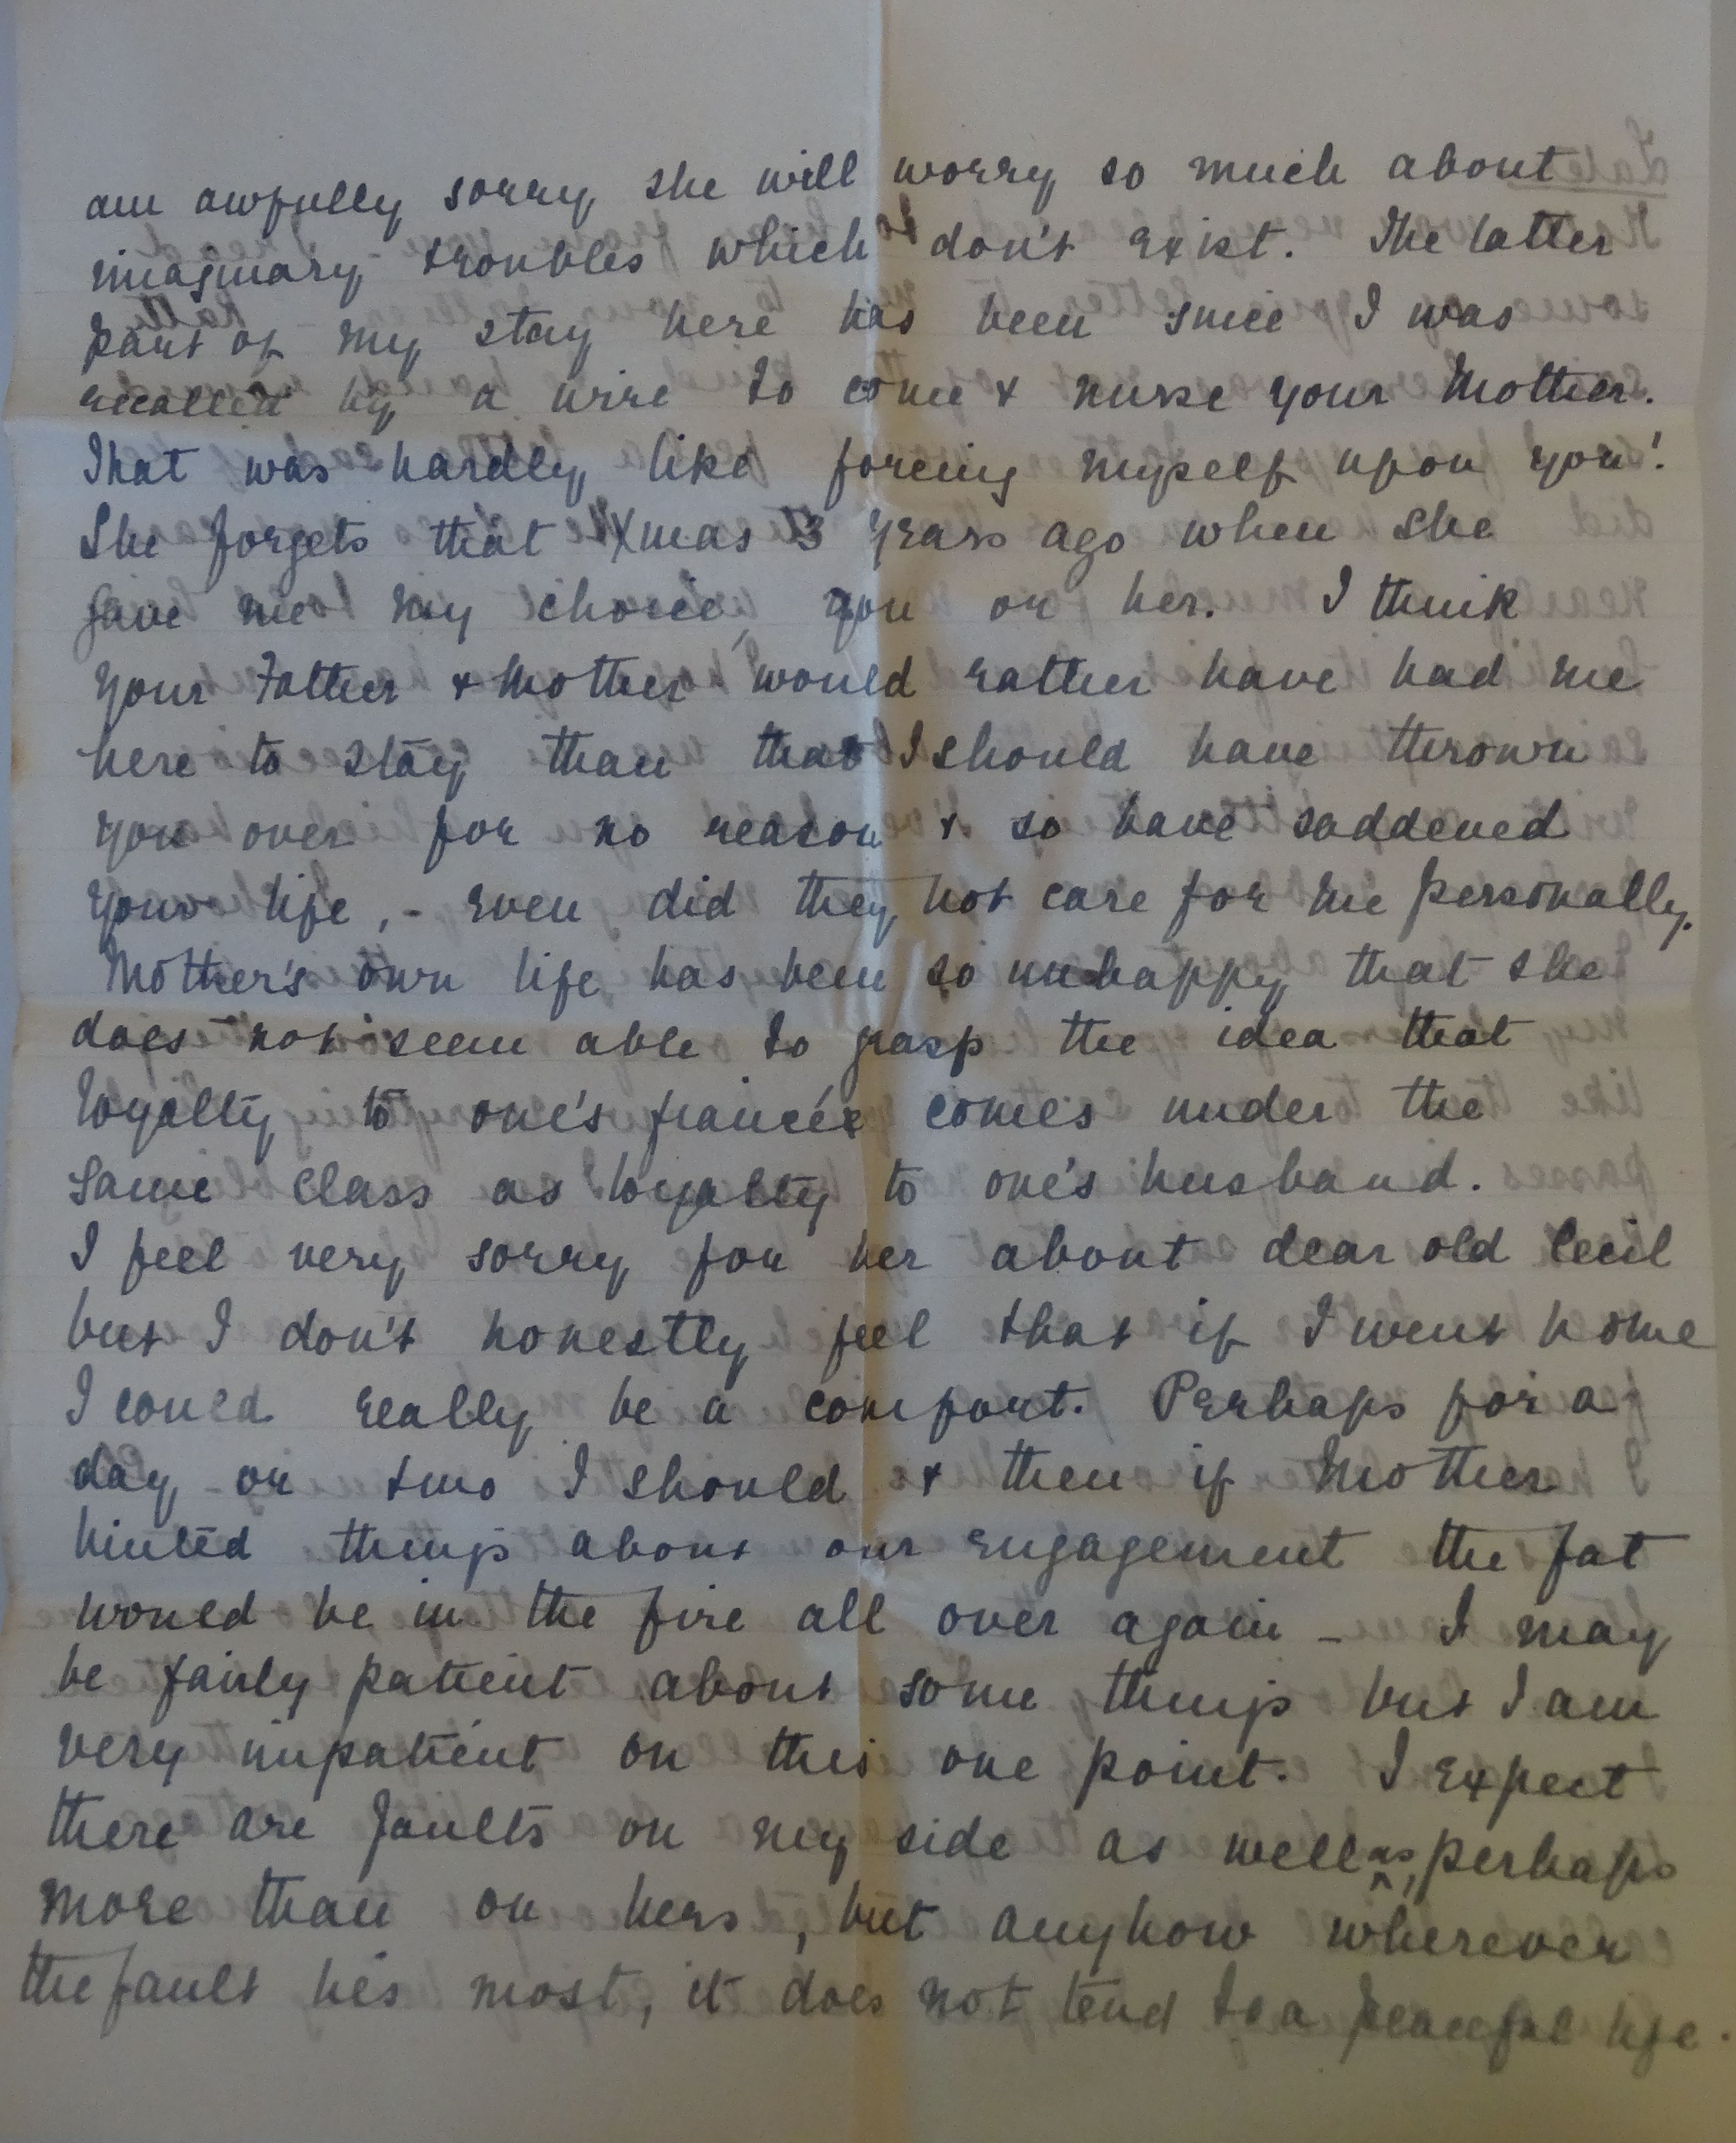 am awfully sorry she will worry so much about
imaginary troubles which don't exist. The latter
part of my stay here has been since I was
recalled by a wire to come & nurse your Mother.
That was hardly like forcing myself upon you!
She forgets that Xmas 3 years ago when she
gave me my choice, you or her. I think
your Father & Mother would rather have had me
here to stay than that I should have thrown
you over for no reason & so have saddened
your life, - even did they not care for me personally.
Mother's own life has been so unhappy that she
does not seem able to grasp the idea that
loyalty to one's fiancée comes under the
same class as loyalty to one's husband.
I feel very sorry for her about dear old Cecil
but I don't honestly feel that if I went home
I could really be a comfort. Perhaps for a
day or two I should & then if Mother
hinted things about our engagement the fat
would be in the fire all over again - I may
be fairly patient about some things but I am
very impatient on this one point. I expect
there are faults on my side as well as, perhaps
more than on hers, but anyhow wherever
the fault lies most, it does not tend to a peaceful life.